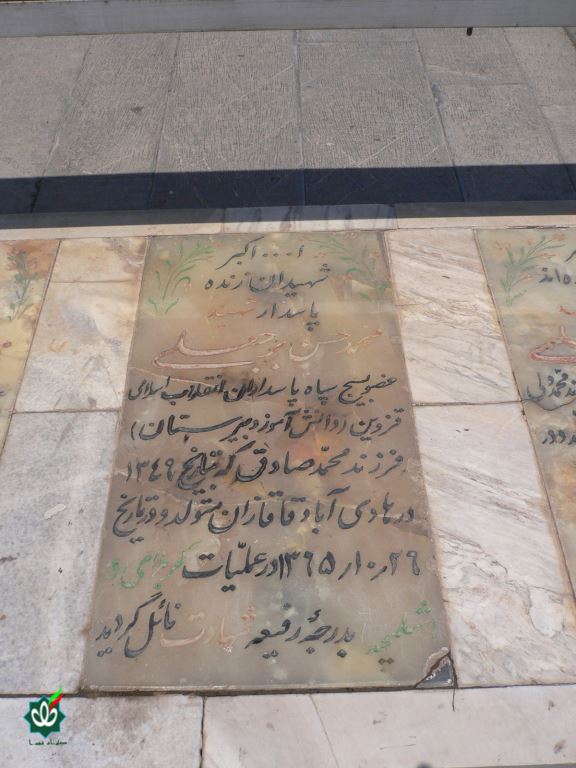 ا... اکبر
شهیدان زنده
پاسدار شهید
محمد حسن
عضو بسیج سپاه پاسداران انقلاب اسلامی
قزوین (دانش آموز دبیرستان)
فرزند محمد صادق که بتاریخ ۱۳۴۹
در هادی آباد قاقازان متولد و در تاریخ
۱۳۶۵٫۱۰٫۲۶ در عملیات کربلای ۵
بدرجۀ رفیعه شهادت نائل گردید